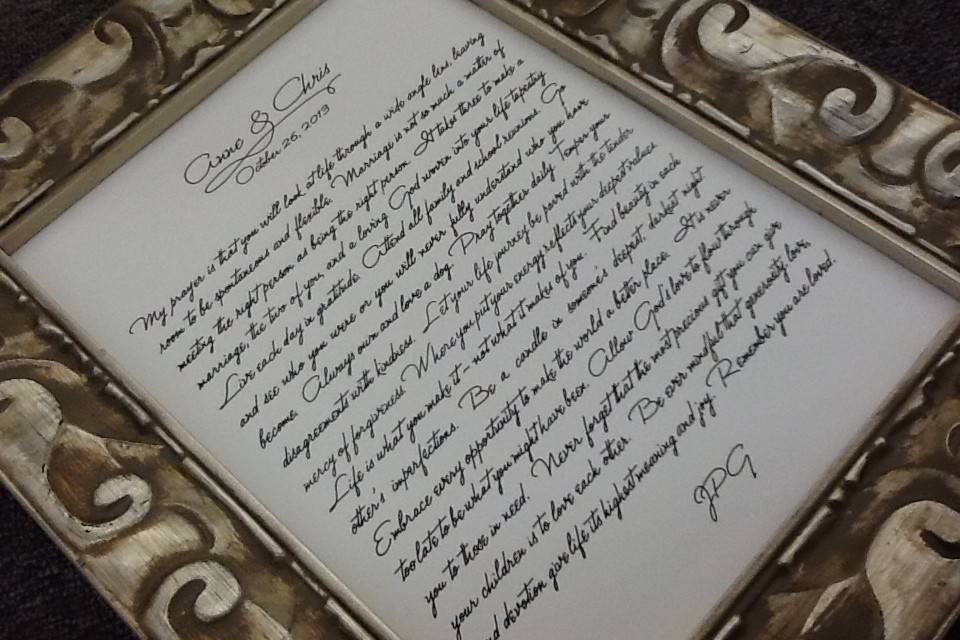 Annie & Chris
October 26, 2013
My prayer is that you will look at life through a wide angle lens leaving
room to be spontaneous and flexible. Marriage is not so much a matter of
meeting the right person as being the right person. It takes three to make a
marriage, the two of you and a loving God woven into your life tapestry.
Live each day in gratitude. Attend all family and school reunions. Go
and see who you were or you will never fully understand who you have
become. Always own and love a dog. Pray together daily. Temper your
disagreements with kindness. Let your life journey be paved with the tender
mercy of forgiveness. Where you put your energy reflects your deepest values.
Life is what you make it - not what it makes of you. Find beauty in each
other's imperfections. Be a candle in someone's deepest, darkest night.
Embrace every opportunity to make the world a better place. It is never
too late to be what you might have been. Allow God's love to flow through
you to those in need. Never forget that the most precious gift you can give
your children is to love each other. Be ever mindful that generosity, love,
and devotion give life its highest meaning and joy. Remember you are loved.
JPG